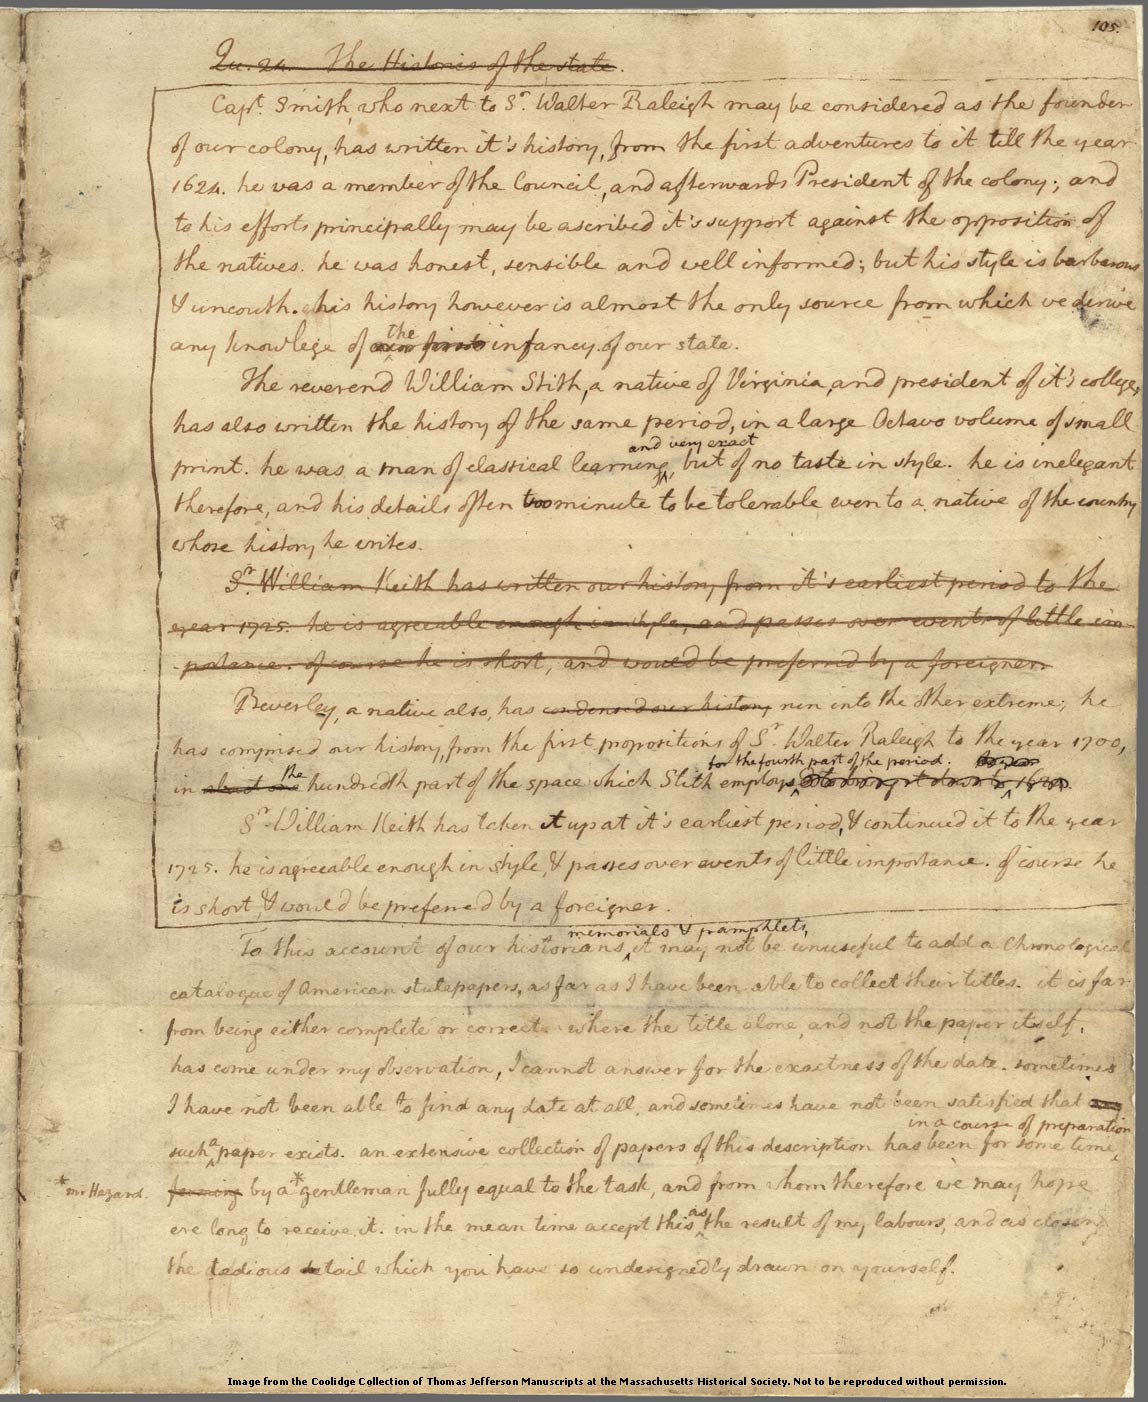 105.
Qu. 24. The Histories of the state.
Capt. Smith, who next to Sr. Walter Raleigh may be considered as the founder
of our colony, has written it's history, from the first adventures to it till the year
1624. he was a member of the Council, and afterwards President of the colony; and
to his efforts principally may be ascribed it's support against the opposition of
the natives. he was honest, sensible and well informed; but his style is barbarous
& uncouth. his history however is almost the only source from which we derive
any knowlege of the first infancy of our state.
The reverend William Stith, a native of Virginia, and president of it's college,
has also written the history of the same period, in a large Octavo volume of small
and very exact
print. he was a man of classical learning, but of no taste in style. he is inelegant
therefore, and his details often too minute to be tolerable even to a native of the country
whose history he writes.
Sr. William Keith has written our history from it's earliest period to the
year 1725. he is agreeable enough in style, and passes over events of little im-
-portance. of course he is short, and would be preferred by a foreigner.
Beverley, a native also, has condensed our history run into the other extreme; he
has comprised our history, from the first propositions of Sr. Walter Raleigh to the year 1700,
for the fourth part of the period.
in about one the hundredth part of the space which Stith employs to bring it down to 1624.
Sr. William Keith has taken it up at it's earliest period, & continued it to the year
1725. he is agreeable enough in style, & passes over events of little importance. of course he
is short, & would be preferred by a foreigner.
memorials & pamphlets,
To this account of our historians, it may not be unuseful to add a Chronological
catalogue of American statepapers, as far as I have been able to collect their titles. it is far
from being either complete or correct. where the title alone, and not the paper itself,
has come under my observation, I cannot answer for the exactness of the date. sometimes
I have not been able to find any date at all, and sometimes have not been satisfied that any
in a course of preparation
such a paper exists. an extensive collection of papers of this description has been for some time,
*mr Hazard. forming by a *gentleman fully equal to the task, and from whom therefore we may hope
ere long to receive it. in the mean time accept this as the result of my labours, and as closing
the tedious detail which you have so undesignedly drawn on yourself.
Image from the Coolidge Collection of Thomas Jefferson Manuscripts at the Massachusetts Historical Society. Not to be reproduced without permission.